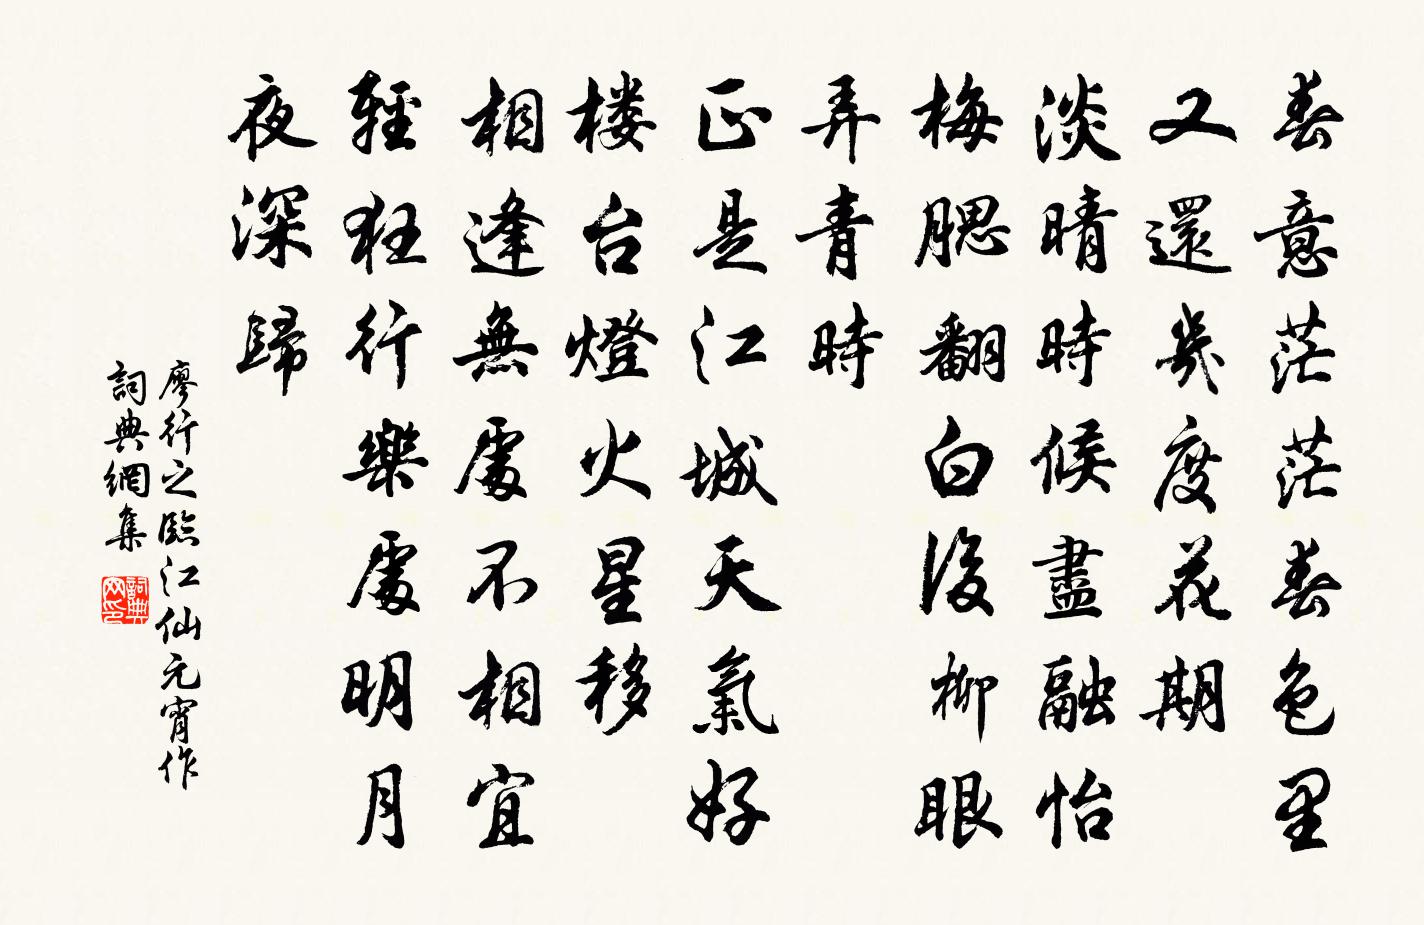 春意茫茫春色里
又還幾度花期
淡晴時候盡融怡
梅腮翻白後柳眼
弄青時
正是江城天氣好
楼台燈火星移
相逢無處不相宜
輕狂行樂處明月
夜深歸
廖行之臨江仙元宵作
詞典網集
詞典网印